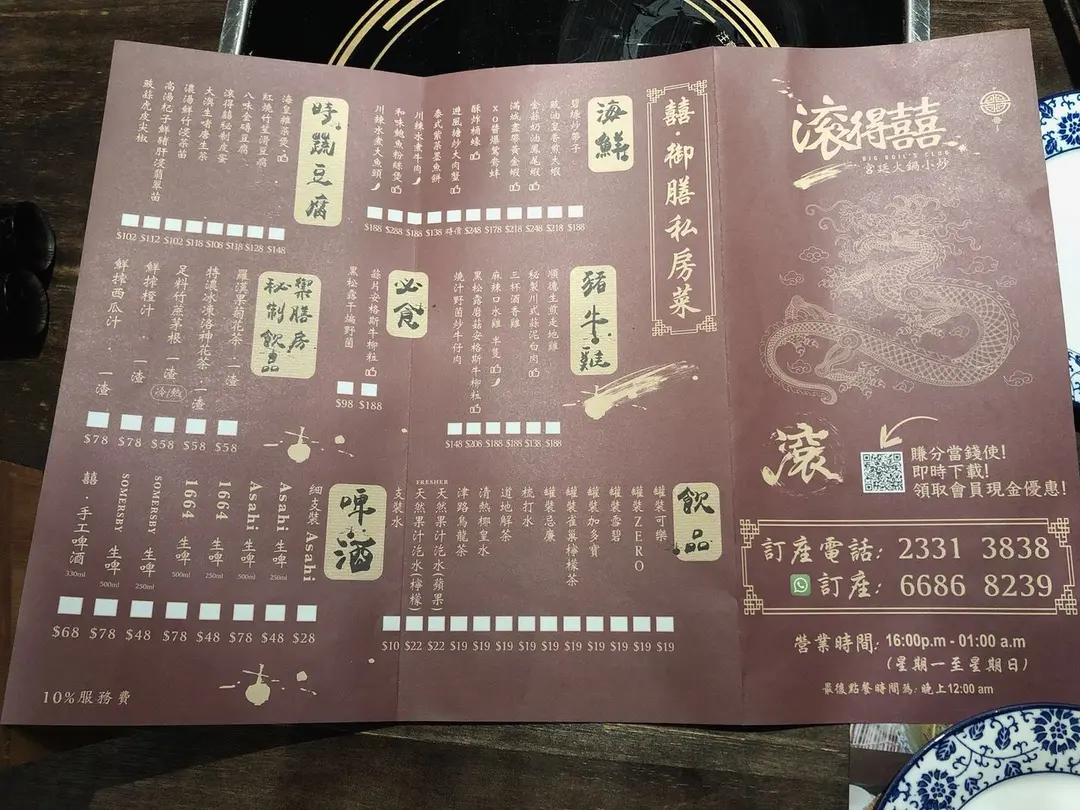 滾得囍
BIG BOIL'S CLUB
宮廷火鍋小炒
滾
賺分當錢使!
即時下載!
領取會員現金優惠!
訂座電話: 2331 3838
訂座: 6686 8239
營業時間: 16:00p.m - 01:00 a.m
(星期一至星期日)
最後點餐時間為: 晚上12:00 am
囍·御膳私房菜
海鮮
碧綠炒帶子 $188
豉油皇香煎大蝦 $218
金蒜奶油鳳尾蝦 $248
滿城盡帶黃金蝦 $218
XO醬爆鴛鴦蚌 $178
酥炸桶蠔 $248
避風塘炒大肉蟹 時價
泰式紫菜墨魚餅 $138
川辣水煮牛肉 $188
和味鮑魚粉絲煲 $288
川辣水煮大魚頭 $188
時蔬豆腐
海皇雜菜煲 $148
紅燒竹笙滑豆腐 $128
八味金磚豆腐 $118
滾得囍秘制皮蛋 $108
大澳生啫唐生菜 $118
濃湯鮮竹浸菜苗 $102
高湯杞子鮮豬肝浸翡翠苗 $112
豉蒜虎皮尖椒 $102
豬牛雞
順德生煎走地雞 $188
秘製川式蒜泥白肉 $138
三杯酒香雞 $188
麻辣口水雞 半隻 $188
黑松露蘑菇安格斯牛柳粒 $208
燒汁野菌炒牛仔肉 $148
必食
蒜片安格斯牛柳粒 $188
黑松露干煸野菌 $98
御膳房秘制飲品
羅漢果菊花茶 一渣 $58
特濃冰凍洛神花茶 一渣 $58
足料竹蔗茅根 一渣 (冷/熱) $58
鮮搾橙汁 一渣 $78
鮮搾西瓜汁 一渣 $78
飲品
罐裝可樂 $19
罐裝ZERO $19
罐裝雪碧 $19
罐裝加多寶 $19
罐裝雀巢檸檬茶 $19
罐裝忌廉 $19
梳打水 $19
道地解茶 $19
清熱椰皇水 $19
津路烏龍茶 $19
FRESHER
天然果汁汽水(蘋果) $22
天然果汁汽水(檸檬) $22
支裝水 $10
啤酒
細支裝 Asahi $28
Asahi 生啤 250ml $48
Asahi 生啤 500ml $78
1664 生啤 250ml $48
1664 生啤 500ml $78
SOMERSBY 生啤 250ml $48
SOMERSBY 生啤 500ml $78
囍·手工啤酒 330ml $68
10%服務費